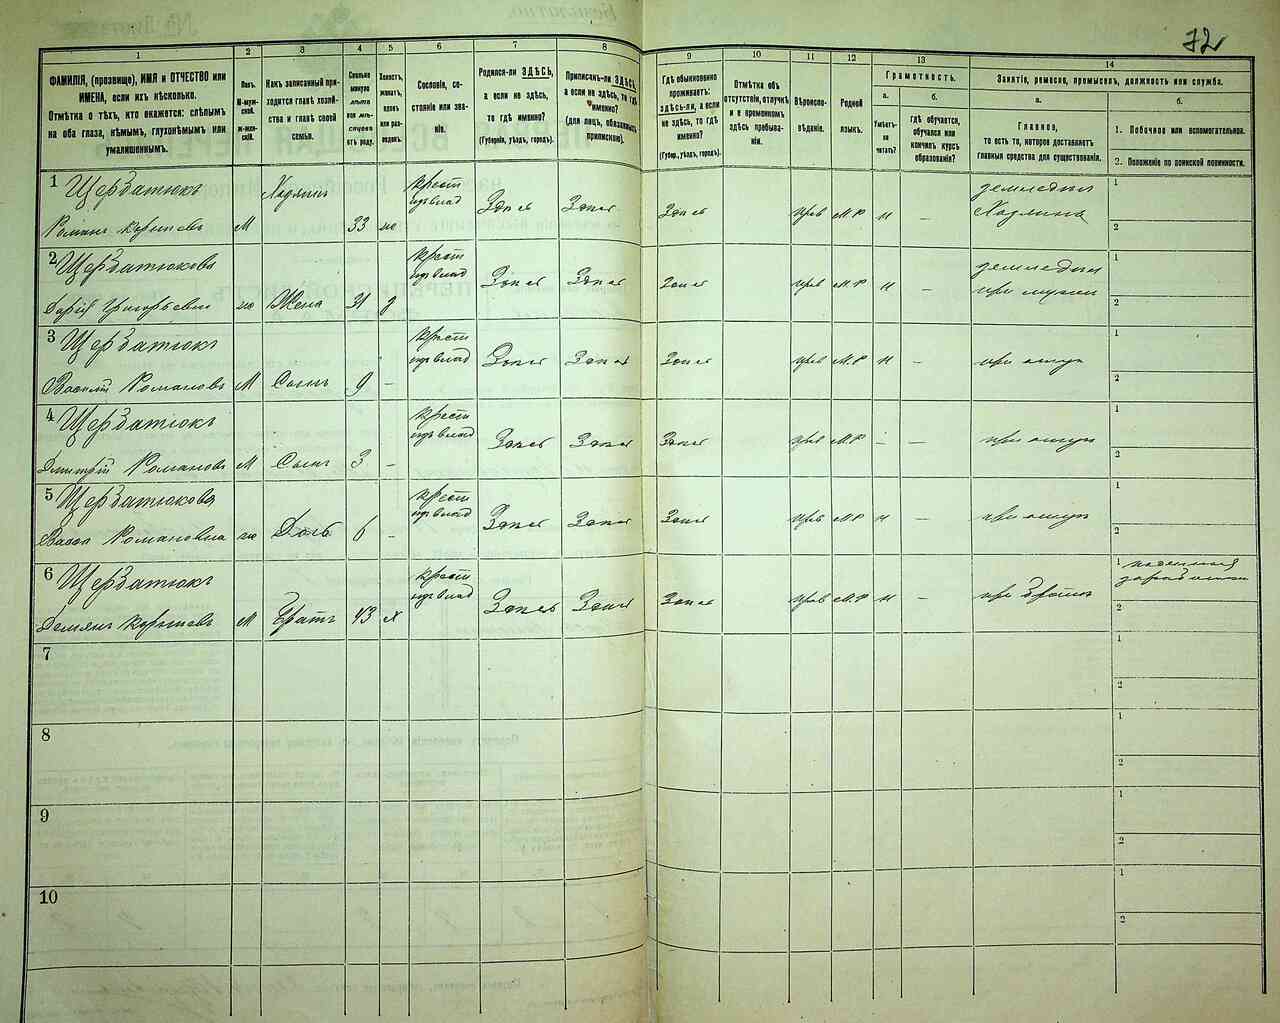 72
1
2
3
4
5
6
7
8
9
10
11
12
13
14
ФАМИЛІЯ, (прозвище), ИМЯ и ОТЧЕСТВО или
ИМЕНА, если ихъ нѣсколько.
Отмѣтка о тѣхъ, кто окажется: слѣпымъ
на оба глаза, нѣмымъ, глухонѣмымъ или
умалишеннымъ.
Полъ.
М-муж-
ской.
Ж-жен-
скій.
Какъ записанный при-
ходится главѣ хозяй-
ства и главѣ своей
семьи.
Сколько
минуло
лѣтъ
или мѣ-
сяцевъ
отъ роду.
Холостъ,
женатъ,
вдовъ
или раз-
веденъ.
Сословіе, со-
стояніе или зва-
ніе.
Родился-ли ЗДѢСЬ,
а если не здѣсь,
то гдѣ именно?
(Губернія, уѣздъ, городъ).
Приписанъ-ли ЗДѢСЬ,
а если не здѣсь, то гдѣ
именно?
(для лицъ, обязанныхъ
припискою).
Гдѣ обыкновенно
проживаетъ:
здѣсь-ли, а если
не здѣсь, то гдѣ
именно?
(Губер., уѣздъ, городъ).
Отмѣтка объ
отсутствіи, отлучкѣ
и о временномъ
здѣсь пребыва-
ніи.
Вѣроиспо-
вѣданіе.
Родной
языкъ.
Грамотность.
а.
Умѣетъ-
ли
читать?
б.
Гдѣ обучается,
обучался или
кончилъ курсъ
образованія?
Занятіе, ремесло, промыселъ, должность или служба.
а.
Главное,
то есть то, которое доставляетъ
главныя средства для существованія.
б.
1. Побочное или вспомогательное.
2. Положеніе по воинской повинности.
1 Щербатюкъ
Романъ Корнѣевъ М Хозяинъ 33 ж крест Здесь Здесь Здесь прав М.Р н –
Хозяинъ
1
2
2 Щербатюкова
Дарія Григорьевна ж Жена 31 з крест Здесь Здесь Здесь прав М.Р н –
при мужѣ
1
2
3 Щербатюкъ
Василій Романовъ М Сынъ 9 – крест Здесь Здесь Здесь прав М.Р н – при отцѣ
1
2
4 Щербатюкъ
Дмитрій Романовъ М Сынъ 3 – крест Здесь Здесь Здесь прав М.Р – – при отцѣ
1
2
5 Щербатюкова
Васса Романовна ж Дочь 6 – крест Здесь Здесь Здесь прав М.Р н – при отцѣ
1
2
6 Щербатюкъ
Демянъ Корнѣевъ М Братъ 43 х крест Здесь Здесь Здесь прав М.Р н – при братѣ
1
2
7
1
2
8
1
2
9
1
2
10
1
2